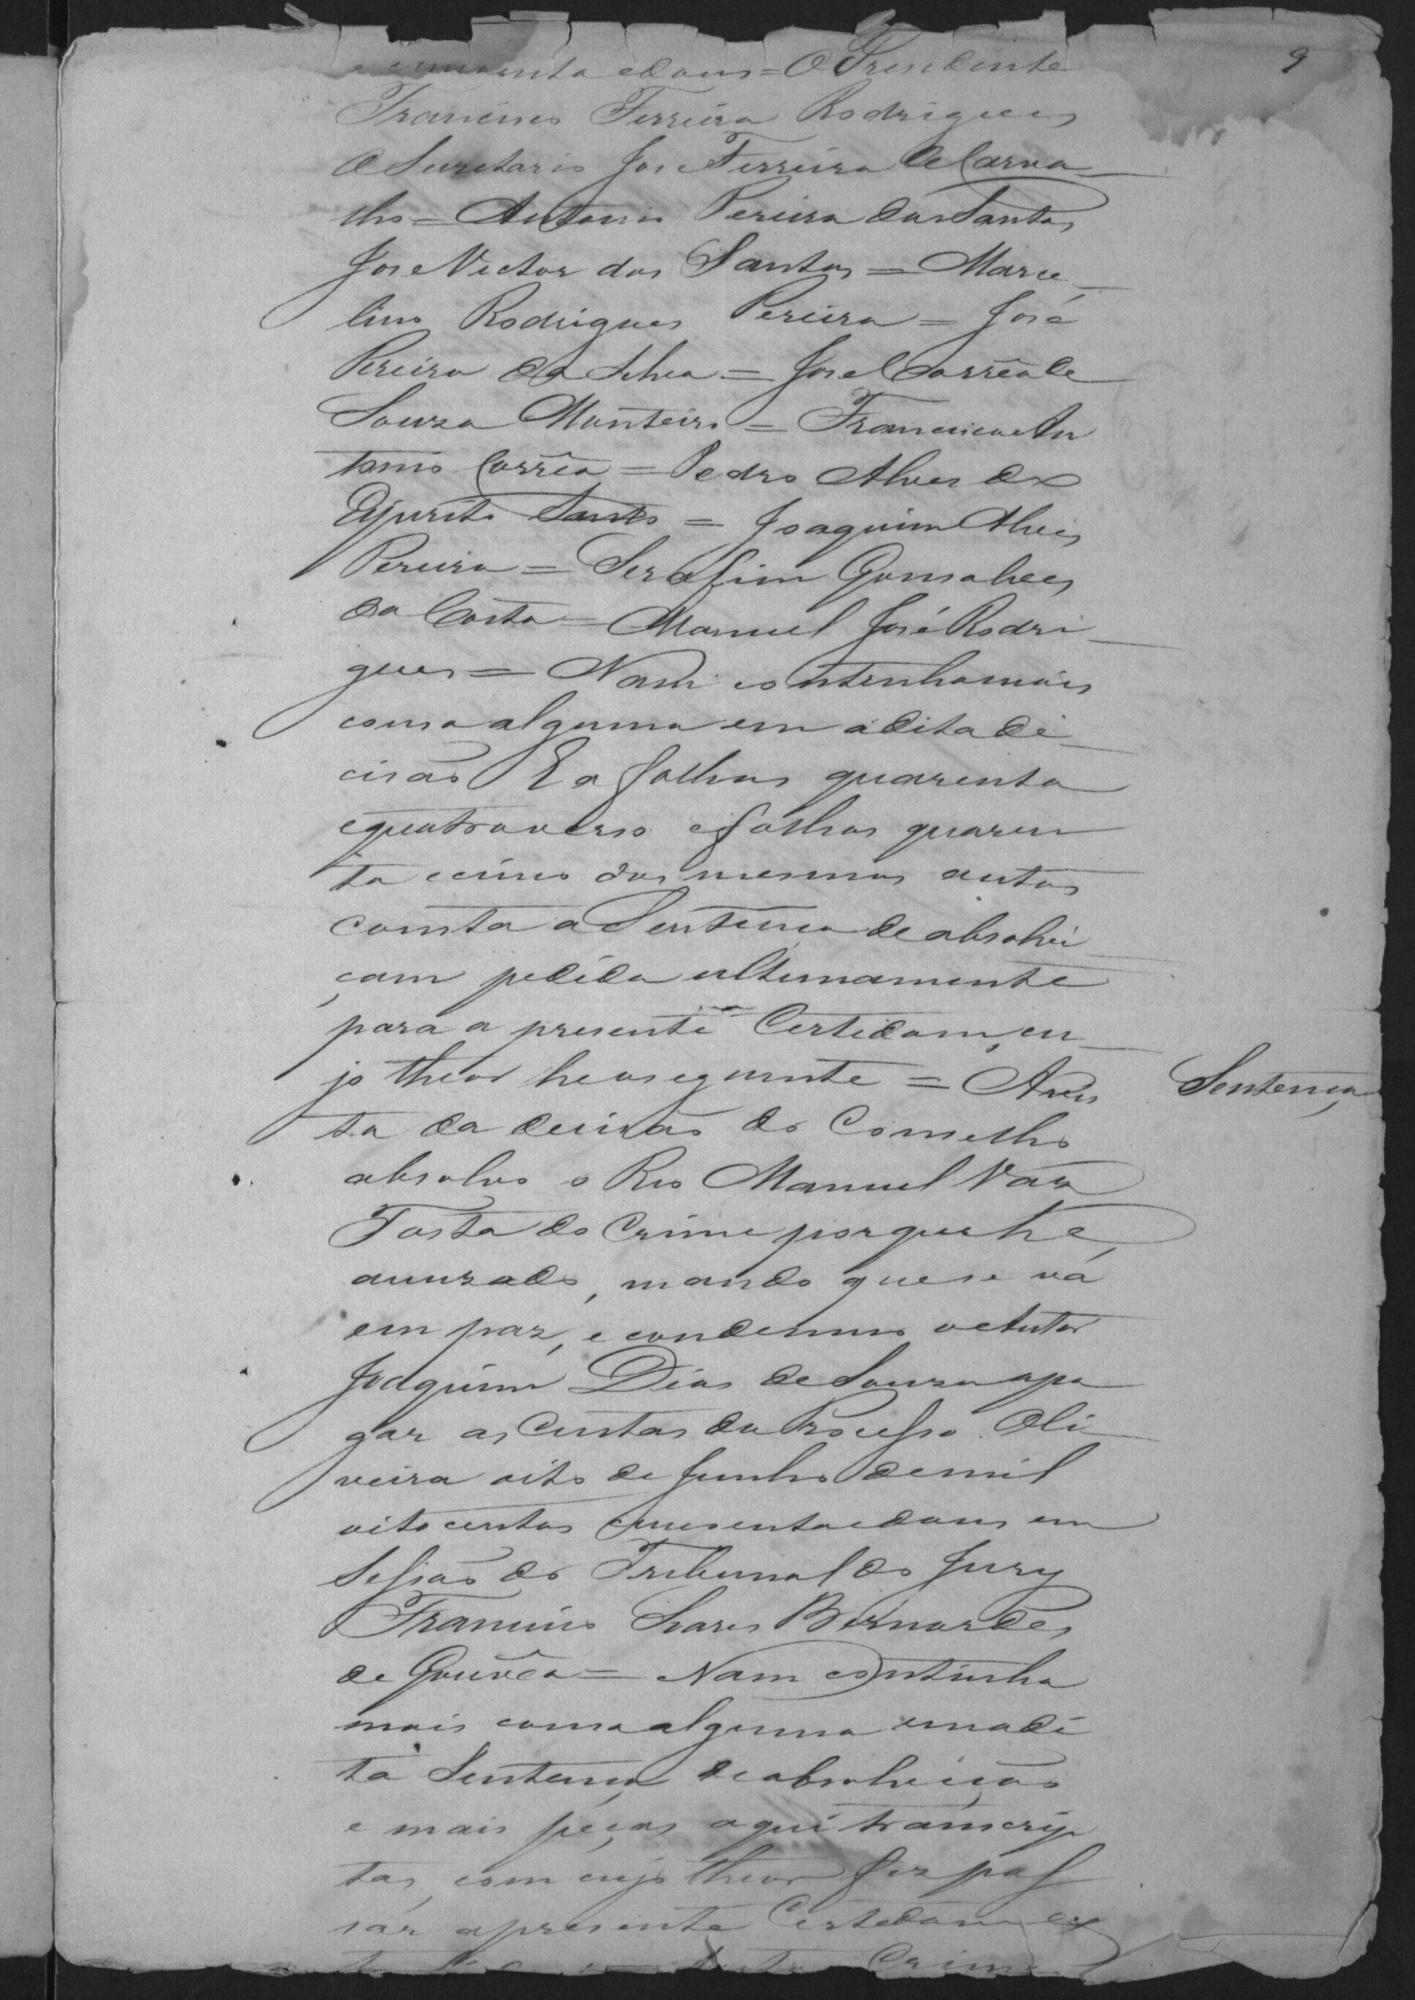 9
e cincoenta edous = O Presidente
Francisco Ferreira Rodrigues
O Secretario Jose Ferreira de Carva
lho = Antonio Pereira dos Santos
Jose Victor dos Santos = Marce
lino Rodrigues Pereira = José
Pereira da Silva = Jose Corrêa de
Souza Monteiro = Francisco An
tonio Corrêa = Pedro Alves do
Espirito Santo = Joaquim Alves
Pereira = Serafim Gonsalves
da Costa = Manuel José Rodri
gues = Nam continha mais
cousa alguma em a dita de
cisão E a folhas quarenta
equatro verso e folhas quaren
ta ecinco dos mesmos autos
consta a Sentença de absolvi
çam pedida ultimamente
para a presente Certidam, cu
jo theor he oseguinte = Avis
Sentença
ta da decisão do Conselho
absolvo o Reo Manuel Vaz
Tosta do Crime porque he
acuzado, mando que se vá
em paz, e condemno o Autor
Joaquim Dias de Souza apa
gar as Custas do Processo. Oli
veira oito de Junho de mil
oito centos cincoenta edous em
Sessão do Tribunal do Jury
Francisco Soares Bernardes
de Gouvêa = Nam continha
mais cousa alguma em adi
ta Sentença de absolvição
e mais peças aqui transcrip
tas, com cujo theor fiz pas
sar apresente Certidam ex
Crime